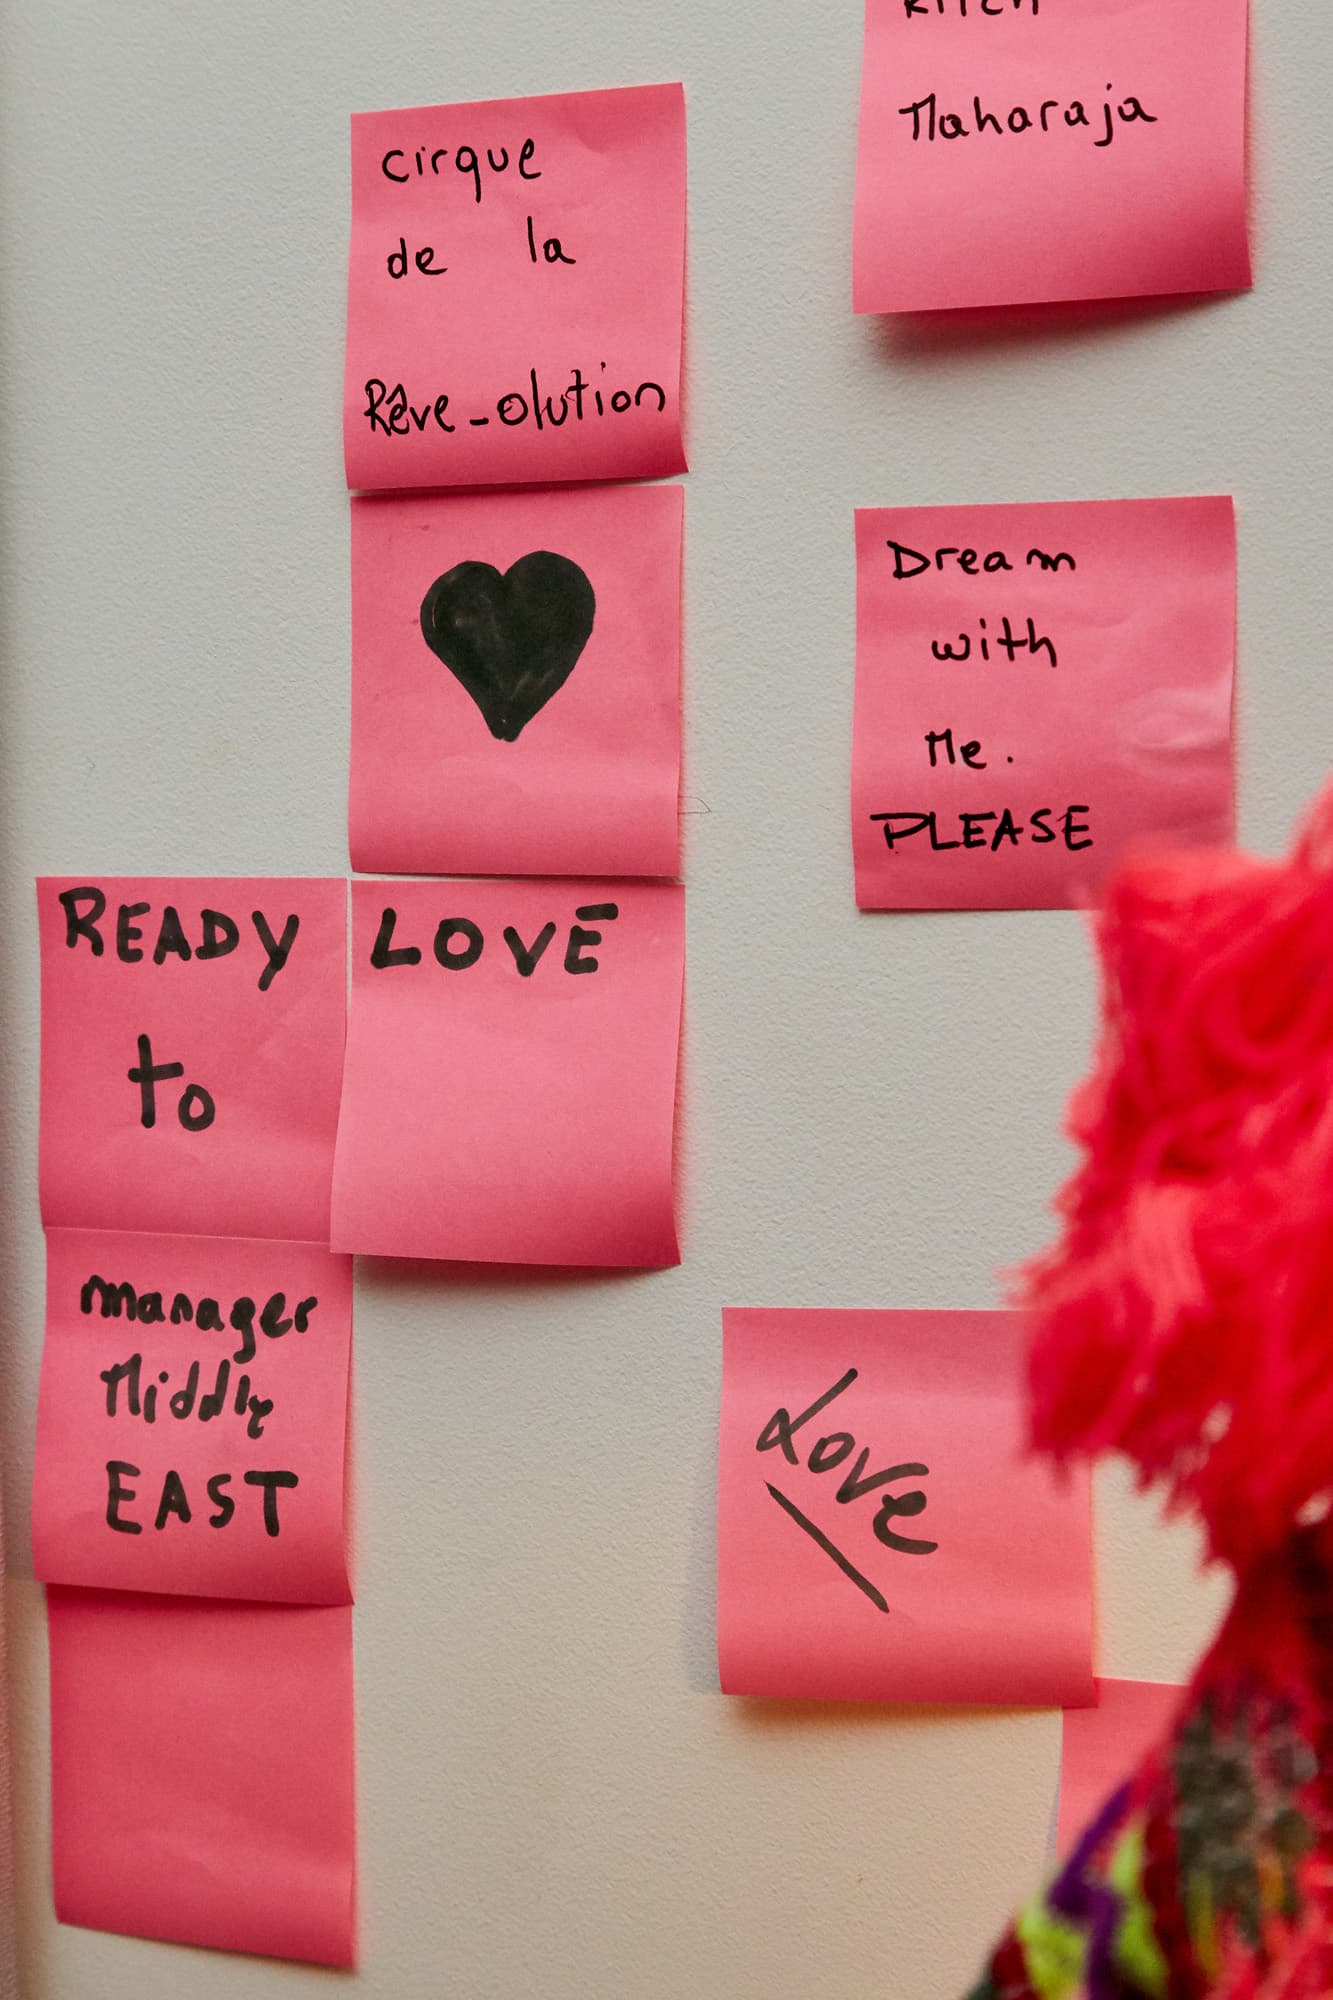 cirque
de la
Rêve-olution
Maharaja
Dream
with
Me.
PLEASE
READY
to
LOVE
manager
Middle
EAST
Love